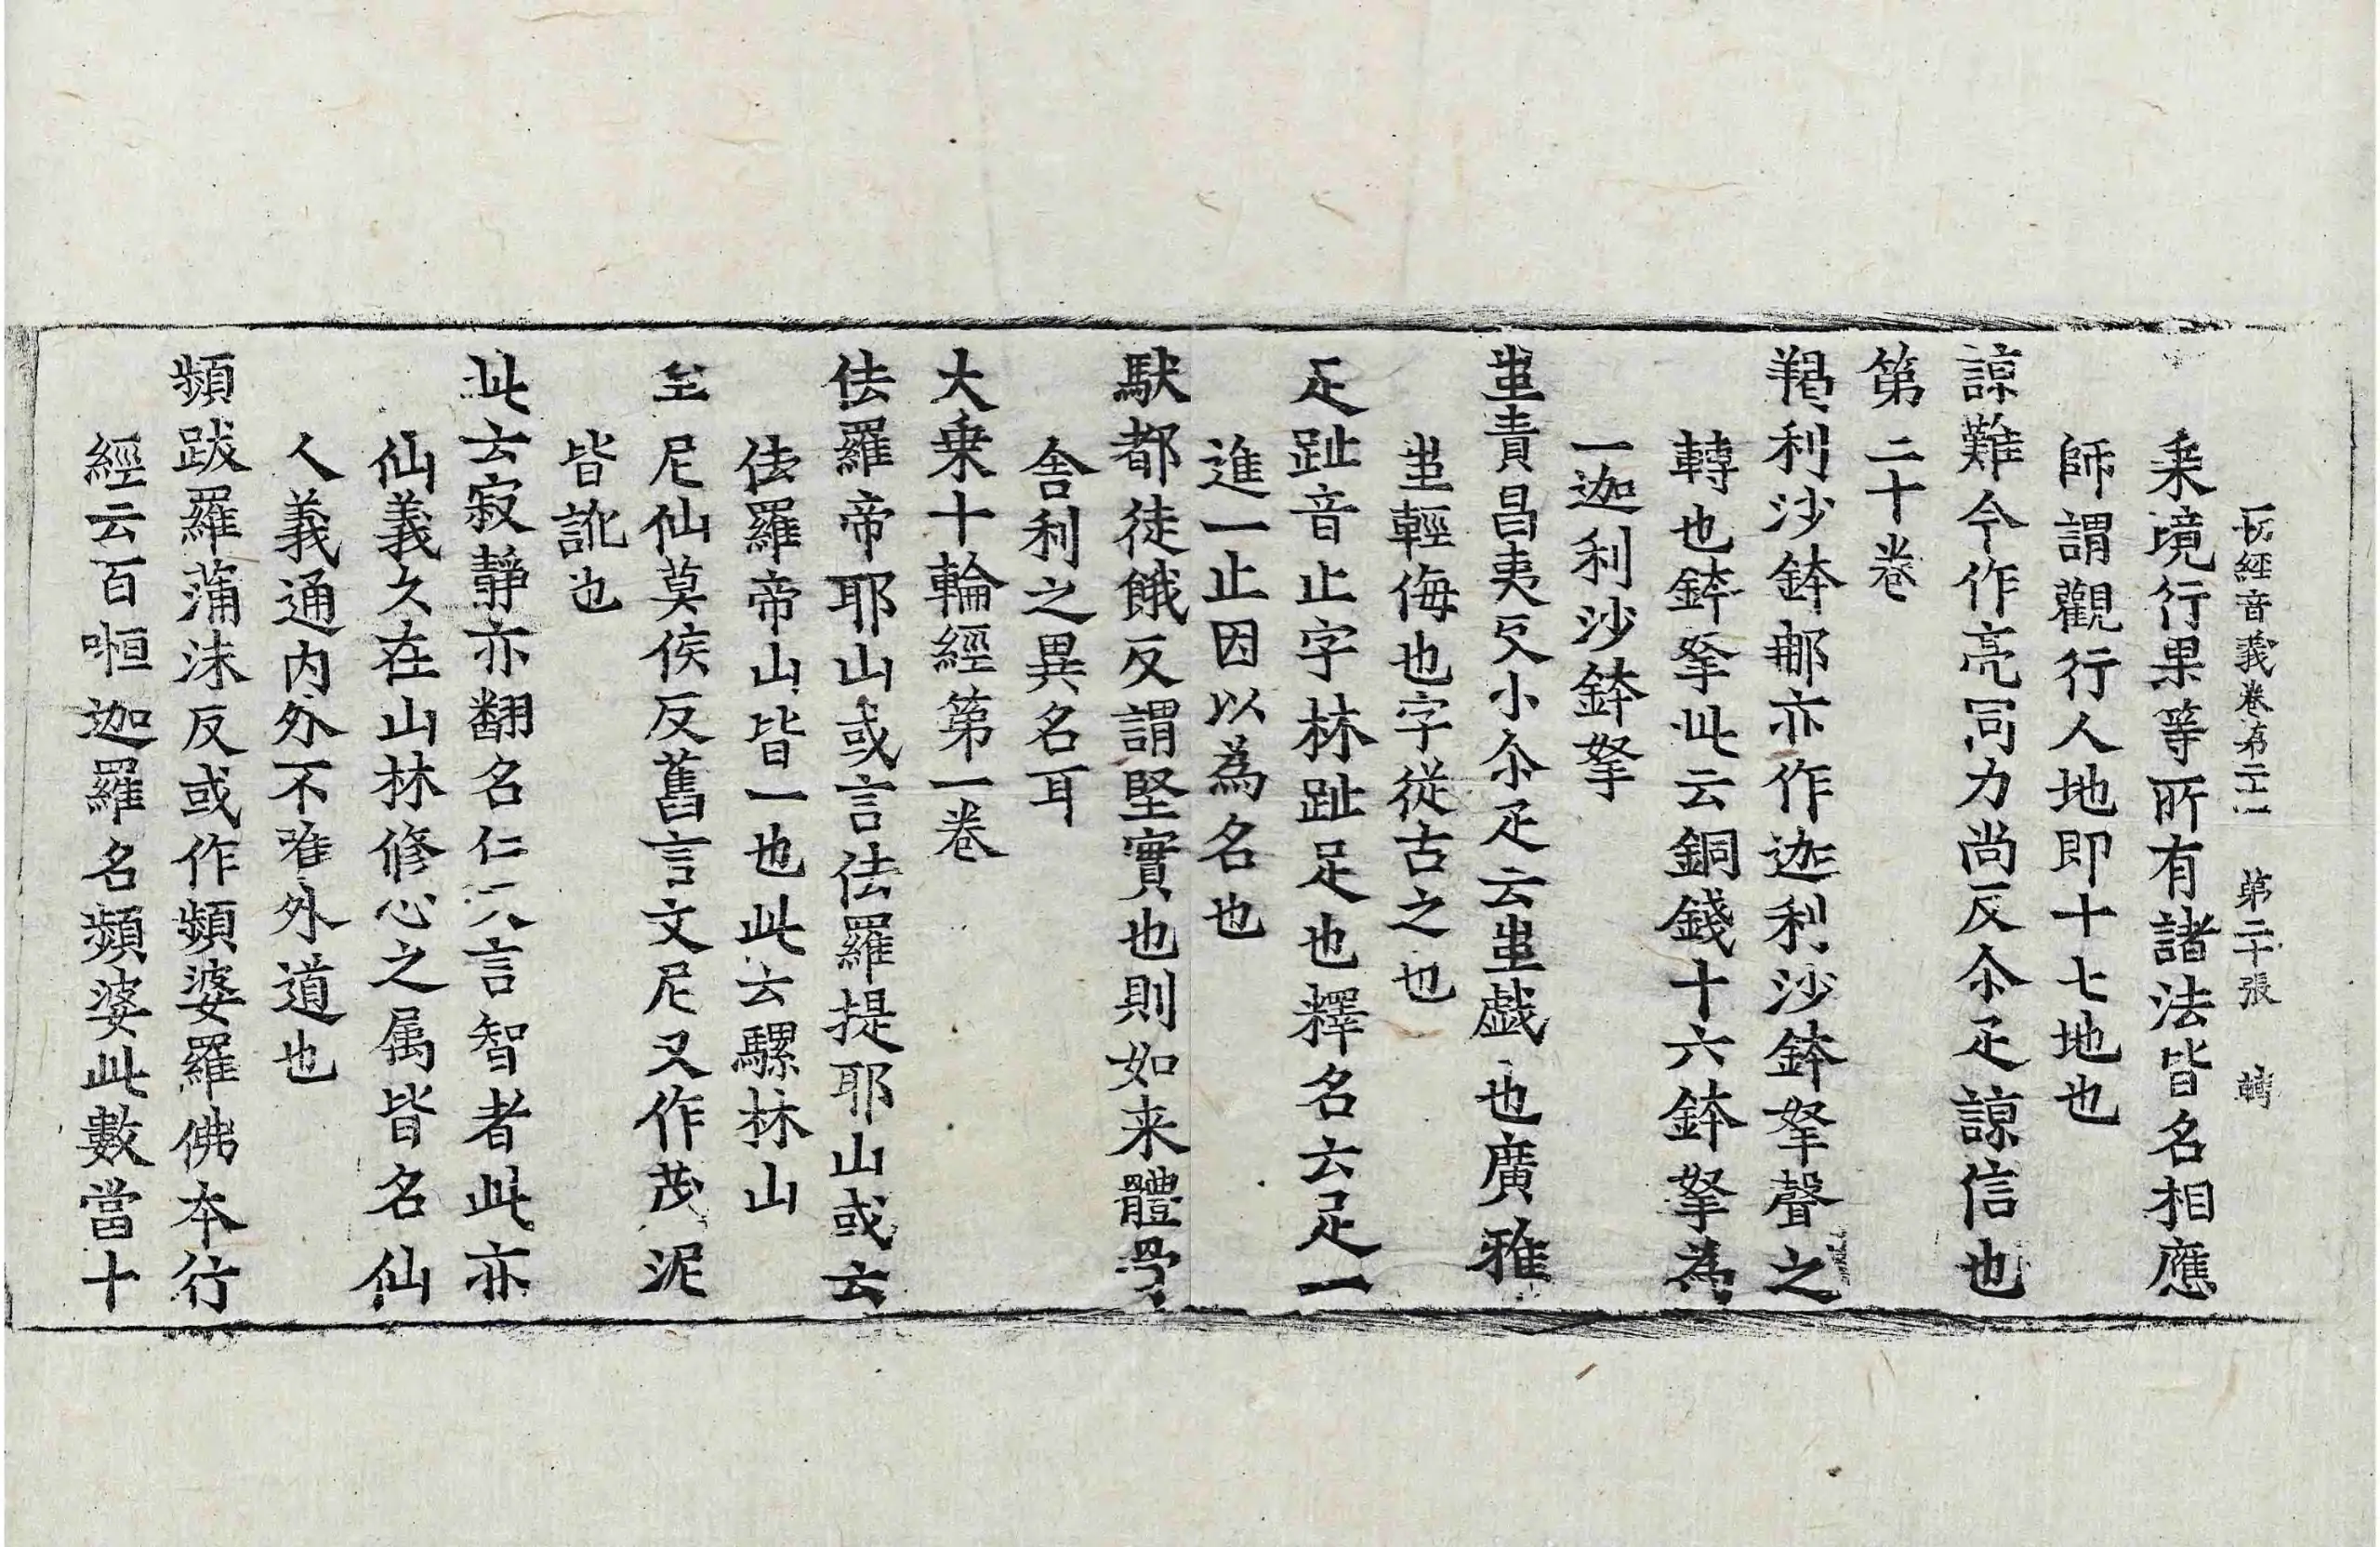 一切經音義卷第二十一 第二十張 轉
乗境行果等所有諸法皆名相應
師謂觀行人地即十七地也
諒難今作亮同力尚反尒疋諒信也
第二十卷
羯利沙鉢那亦作迦利沙鉢拏聲之
轉也鉢拏此云銅錢十六鉢拏為
一迦利沙鉢拏
蚩責昌夷反小尒疋云蚩戯也廣雅
蚩輕侮也字從古之也
疋趾音止字林趾足也釋名云足一
進一止因以為名也
馱都徒餓反謂堅實也則如来體骨
舎利之異名耳
大乗十輪經第一卷
佉羅帝耶山或言佉羅提耶山或云
佉羅帝山皆一也此云騾林山
牟尼仙莫侯反舊言文尼又作茂泥
皆訛也
此云寂静亦翻名仁一言智者此亦
仙義久在山林修心之属皆名仙
人義通内外不唯外道也
頻跋羅蒲沫反或作頻婆羅佛本行
經云百𠹀迦羅名頻婆此數當十